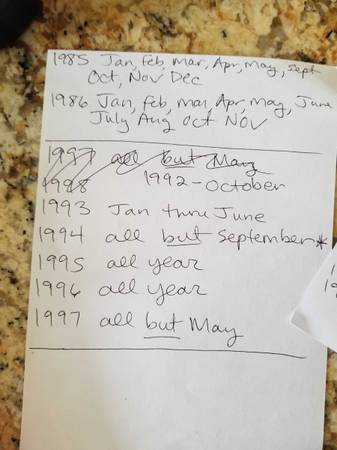 1985 Jan, Feb, mar, Apr, May, Sept
Oct, Nov Dec
1986 Jan, Feb, mar, Apr, may, June
July Aug Oct Nov
1997 all but May
1998
1992 - October
1993 Jan thru June
1994 all but September*
1995 all year
1996 all year
1997 all but May